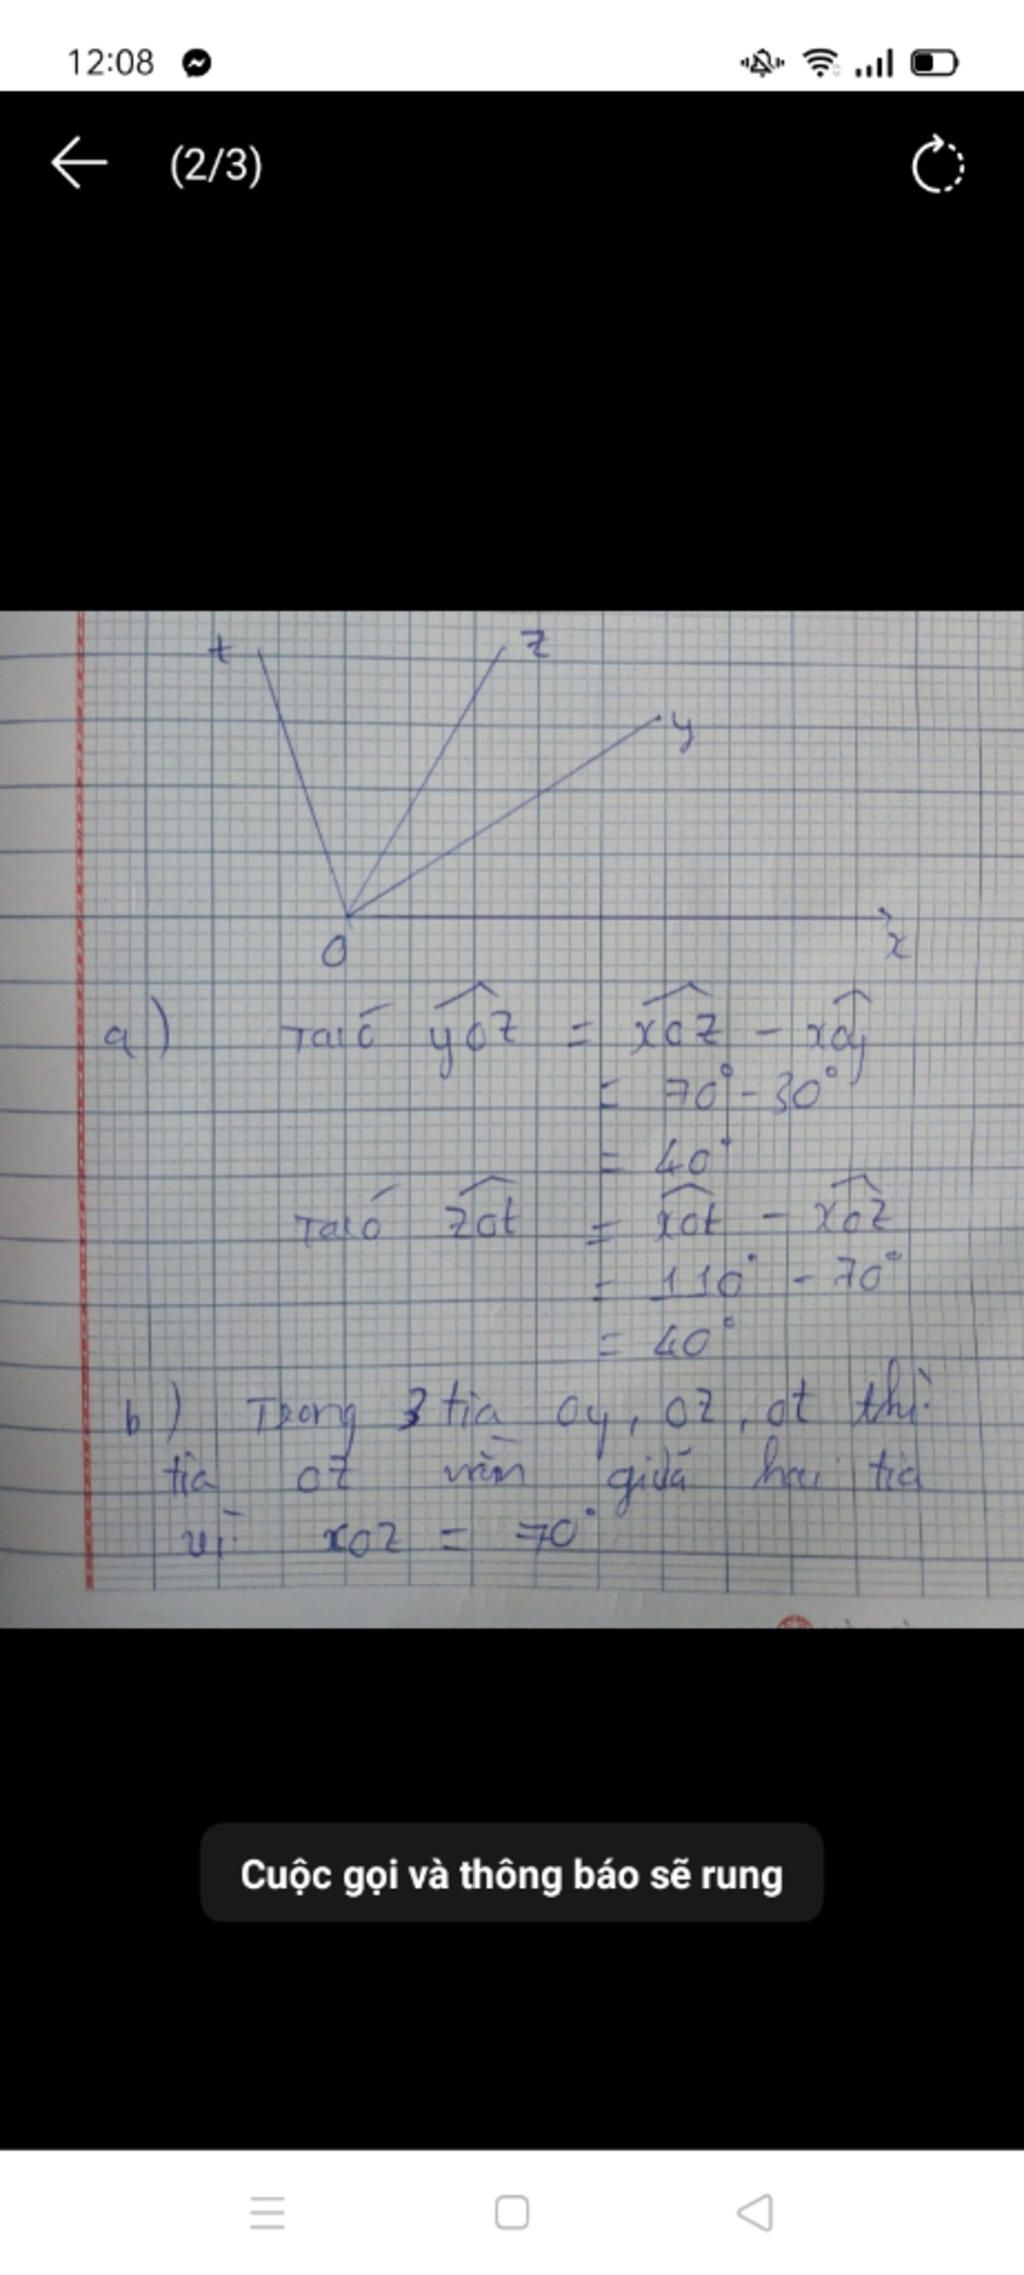 12:08
(2/3)
t z
y
O x
a) Ta có yOz = xOz - xOy
= 70° - 30°
= 40°
Ta có zOt = xOt - xOz
= 110° - 70°
= 40°
b) Trong 3 tia Oy, Oz, Ot thì
tia Oz nằm giữa hai tia
vì xOz = 70°
Cuộc gọi và thông báo sẽ rung